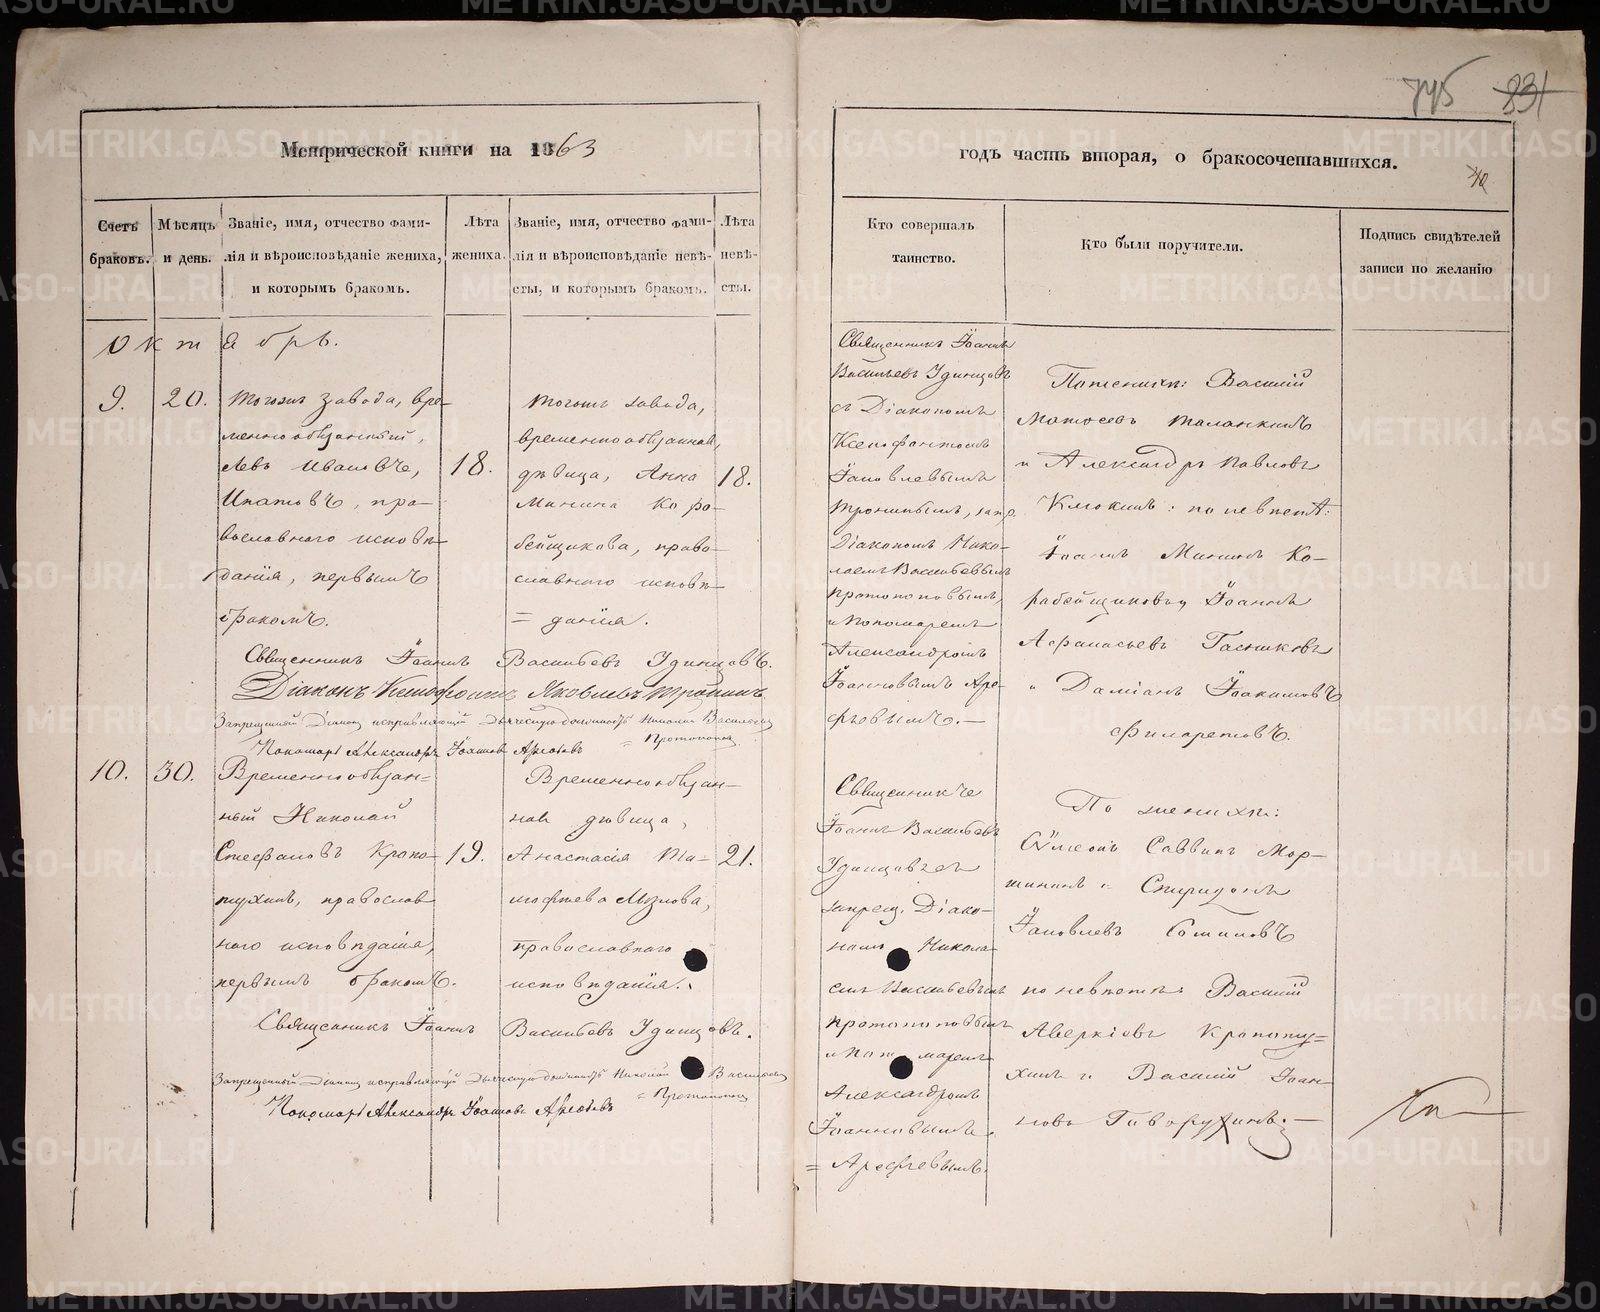 745 831
Метрической книги на 1863
годъ часть вторая, о бракосочетавшихся.
Счетъ браковъ.
Мѣсяцъ и день.
Званіе, имя, отчество фами-
лія и вѣроисповѣданіе жениха,
и которымъ бракомъ.
Лѣта
жениха.
Званіе, имя, отчество фами-
лія и вѣроисповѣданіе невѣ-
сты, и которымъ бракомъ.
Лѣта
невѣ-
сты.
Кто совершалъ
таинство.
Кто были поручители.
Подпись свидѣтелей
записи по желанію
Октябрь.
9.
20.
Тогожъ завода, вре-
менно обязанный,
Левъ Ивановъ,
Ипатовъ, пра-
вославнаго исповѣ-
данія, первымъ
бракомъ.
18.
Тогожъ завода,
временно обязанная,
дѣвица, Анна
Минина Коро-
бейщикова, право-
славнаго исповѣ-
= данія.
18.
Священникъ Іоаннъ
Васильевъ Удинцовъ
съ Діакономъ
Ксенофонтомъ
Іаковлевымъ
Трониным, запр.
Діакономъ Нико-
лаемъ Васильевымъ
Протопоповымъ,
и Пономаремъ
Александромъ
Іоанновымъ Аре-
фьевымъ.—
По женихѣ: Василій
Матѳеевъ Таланкинъ
и Александръ Павловъ
Клюкинъ: по невѣстѣ:
Іоаннъ Мининъ Ко-
робейщиковъ, Іоаннъ
Афанасьевъ Гасниковъ
и Даміанъ Іоакимовъ
Филаретовъ.
Священникъ Іоаннъ Васильевъ Удинцовъ.
Діаконъ Ксенофонтъ Яковлевъ Тронинъ
Запрещенный Діаконъ исправляющій Дьяческую должность Николай Васильевъ
= Протопоповъ
Пономарь Александръ Іоанновъ Арефьевъ
10.
30.
Временно обязан-
ный Николай
Стефановъ Крохо-
19.
Временно обязан-
ная дѣвица,
Анастасія Ти-
мофѣева Мызлова,
православнаго
исповѣданія.
21.
ного исповѣданія,
первымъ бракомъ.
Священникъ
Іоаннъ Васильевъ
Удинцовъ съ
запрещ. Діако-
номъ Никола-
емъ Васильевымъ
Протопоповымъ
и Пономаремъ
Александромъ
Іоанновымъ
= Арефьевымъ.
По женихѣ:
Сѵмеонъ Саввинъ Мор-
и Спиридонъ
Іаковлевъ
по невѣстѣ: Василій
Аверкіевъ
и Василій Іоан-
новъ Говорухинъ.—
Священникъ Іоаннъ Васильевъ Удинцовъ.
Запрещенный Діаконъ исправляющій Дьяческую должность Николай Васильевъ
= Протопоповъ
Пономарь Александръ Іоанновъ Арефьевъ
METRIKI.GASO-URAL.RU